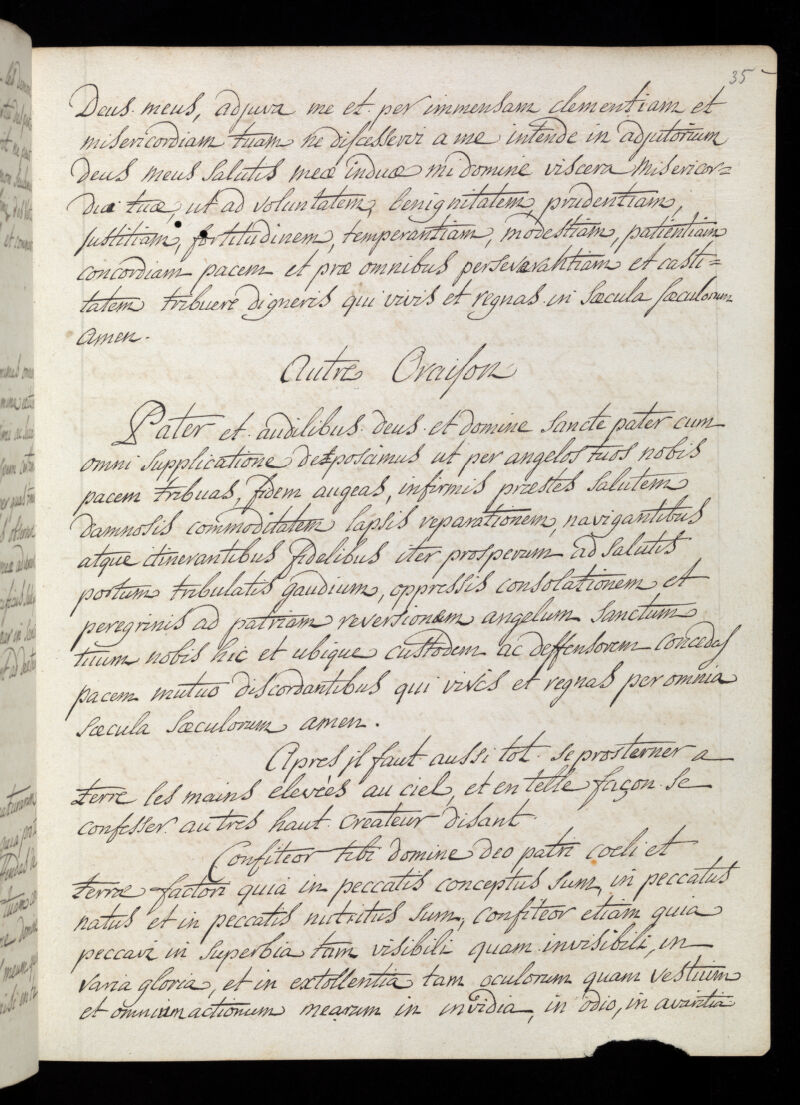 35
Deus meus, adjuva me et per immensam clementiam et
misericordiam tuam ne discesserri a me intende in adjutorium
deus meus salutis meæ induæ mi domine viscera misericor=
diæ tuæ, ut ad voluntatem, benignitatem, prudentiam,
justitiam, fortitudinem, temperantiam, modestiam, patientiam
concordiam pacem et præ omnibus perseverantiam et casti=
tatem tribuere digneris qui vivis et regnas in sæcula sæculorum
amen.
Autre Oraison
Pater et audilibus deus et domine sancte pater cum
omni supplicatione dexposcimus ut per angelos tuos nobis
pacem tribuas, fidem augeas, infirmis præstes salutem
damnosis commoditatem lapsis reparationem, navigantibus
atque itinerantibus fidelibus iter prosperum ad salutis
portum tribulatis gaudium, oppressis consolationem et
peregrinis ad patriam reversionem angelum sanctum
tuum nobis hic et ubique custodem ac deffensorem concedas
pacem mutuo discordantibus qui vivis et regnas per omnia
sæcula sæculorum amen.
Apres jl faut aussi tot se prosterner a
terre les mains eleveés au ciel, et en telle façon se
confesser au tres haut Createur disant
Confiteor tibi domine deo patri coeli et
terræ factori quia in peccatis conceptus sum, in peccatus
natus et in peccatis nutritus sum, confiteor etiam quia
peccavi in superbia tam visibili quam invisibili, in
varia gloria, et in extollentia tam oculorum quam vestium
et omnium actionum mearum in invidia, in odio, in avaritia